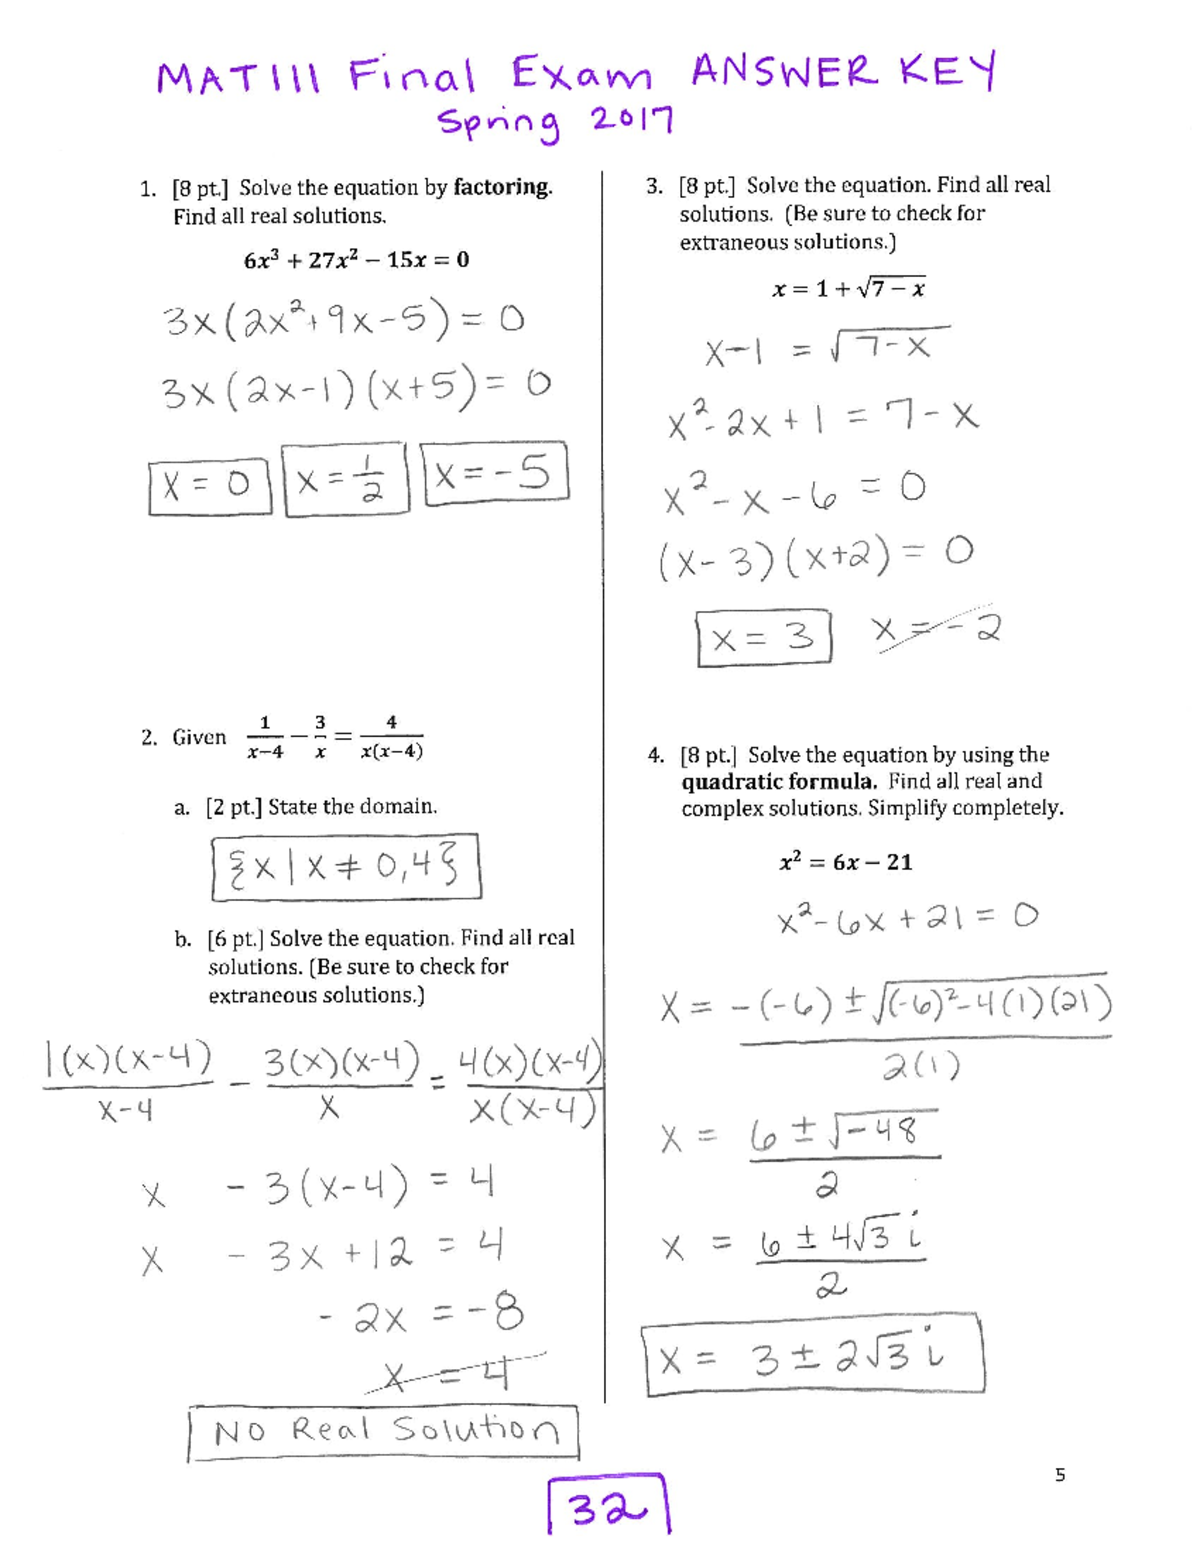 MAT111 Final Exam ANSWER KEY
Spring 2017
1. [8 pt.] Solve the equation by factoring.
Find all real solutions.
6x³ + 27x² − 15x = 0
3x(2x²+9x−5) = 0
3x(2x−1)(x+5) = 0
x = 0 x = 1/2 x = −5
2. Given 1/(x−4) − 3/x = 4/(x(x−4))
a. [2 pt.] State the domain.
{x | x ≠ 0,4}
b. [6 pt.] Solve the equation. Find all real
solutions. (Be sure to check for
extraneous solutions.)
1(x)(x−4)/(x−4) − 3(x)(x−4)/x = 4(x)(x−4)/(x(x−4))
x − 3(x−4) = 4
x − 3x + 12 = 4
− 2x = −8
x = 4
No Real Solution
3. [8 pt.] Solve the equation. Find all real
solutions. (Be sure to check for
extraneous solutions.)
x = 1 + √(7 − x)
x−1 = √(7−x)
x²−2x+1 = 7−x
x²−x−6 = 0
(x−3)(x+2) = 0
x = 3 x = −2
4. [8 pt.] Solve the equation by using the
quadratic formula. Find all real and
complex solutions. Simplify completely.
x² = 6x − 21
x²−6x+21 = 0
x = (−(−6) ± √((−6)²−4(1)(21)))/(2(1))
x = (6 ± √−48)/2
x = (6 ± 4√3 i)/2
x = 3 ± 2√3 i
5
32